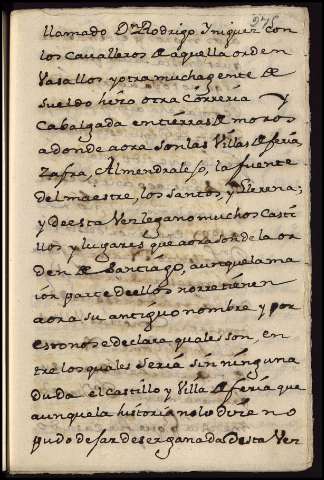 275
llamado Dn Rodrigo Yniguez con
los Cavalleros de aquella orden
Vasallos y otra mucha gente de
sueldo hizo otra Correria y
Cabalgada en tierras de moros
a donde aora son las Villas de feria,
Zafra, Almendralejo, la fuente
del maestre, los Santos, y Llerena;
y de esta Vez legano muchos Casti
llos y lugares que aora son de la or
den de Santiago, aunque la ma
ior parte de ellos no retienen
aora su antiguo nombre y por
eso no se declara quales son, en
tre los quales seria sin ninguna
duda el castillo y Villa de feria que
aunque la historia no lo dize no
pudo dejar de ser ganada desta Vez